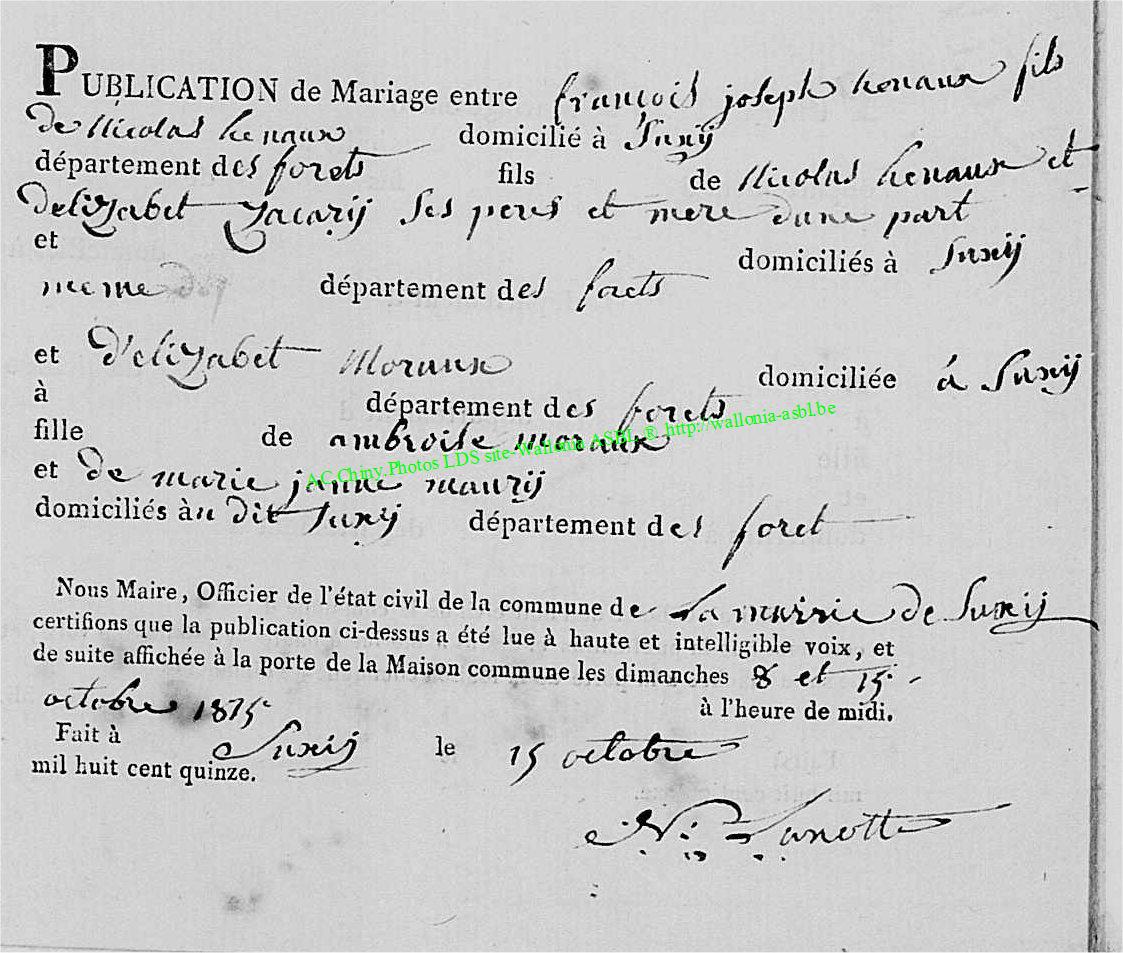 PUBLICATION de Mariage entre françois joseph henaux fils
de Nicolas henaux domicilié à Suxÿ
département des forets fils de Nicolas henaux et
delizabet Zacarÿ ses peres et mere dune part
et domiciliés à Suxÿ
meme département des forets
et d'elizabet Moraux domiciliée á Suxÿ
à département des forets
fille de ambroise moraux
AC.Chiny.Photos LDS site-Wallonia ASBL ®. http://wallonia-asbl.be
et de marie janne maurÿ
domiciliés àu dit Suxÿ département des foret
Nous Maire, Officier de l'état civil de la commune de La mairie de Suxÿ
certifions que la publication ci-dessus a été lue à haute et intelligible voix, et
de suite affichée à la porte de la Maison commune les dimanches 8 et 15
octobre 1815 à l'heure de midi.
Fait à Suxÿ le 15 octobre
mil huit cent quinze.